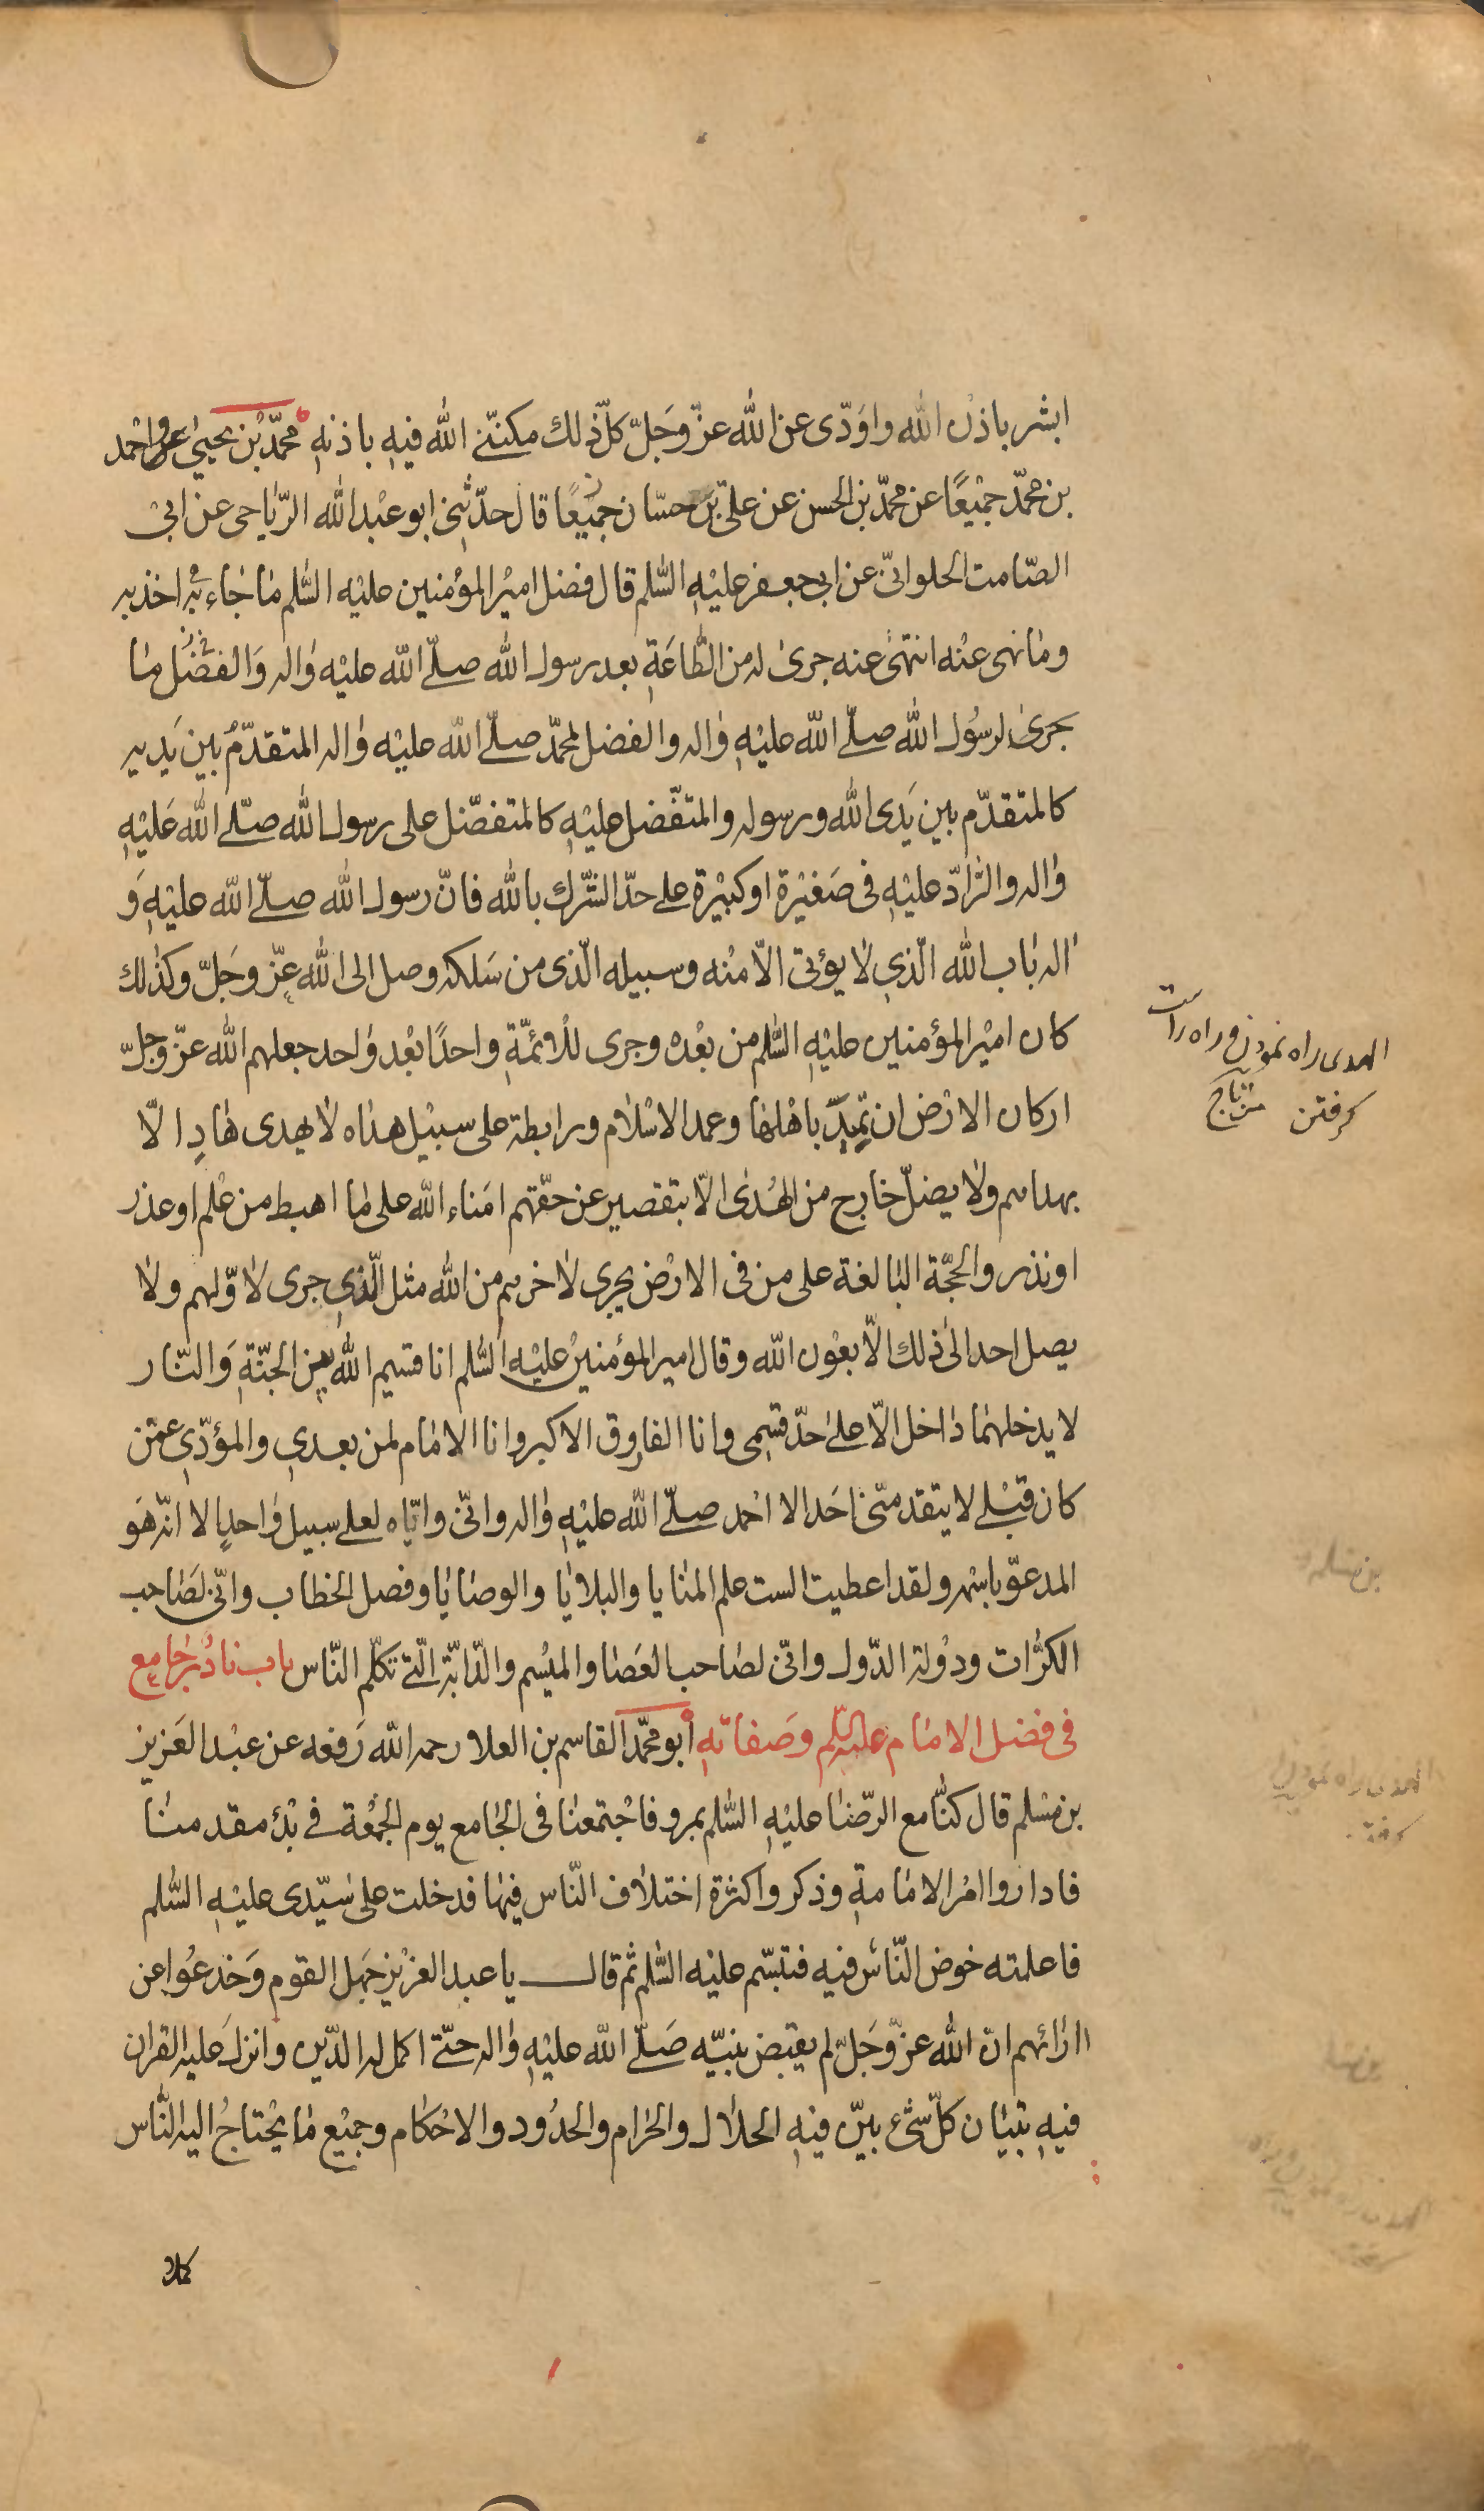 ابشر باذن الله واوَدّى عن الله عزّ وجَلّ كلّ ذلك مكنّنى الله فيهِ باذنهِ محمّد بْن يحيىٰ واحْمد
بن محمّد جمْيعًا عن محمّد بن الحسن عن علىّ بْن حسّان جميْعًا قال حدّثنى ابو عبْد الله الرّياحى عن ابىْ
الصّامت الحلوانىّ عن ابى جعفر عليْهِ السّلم قال فضل اميْر المؤمنين عليْه السّلم مٰا جٰاء به اخذ به
ومٰا نهى عنْه انتهىٰ عنه جرىٰ له من الطّاعَةِ بعد رسول الله صلّى الله عليْه وٰاله وَالفضْل مٰا
جرىٰ لرسُول الله صلّى الله عليْهِ وٰاله والفضل لمحمّد صلّى الله عليْه وٰاله المتقدّمُ بين يَديه
كالمتقدّم بين يَدى الله ورسوله والمتفّضل عليْهِ كالمتفضّل على رسول الله صلّى الله عَليْهِ
وٰاله والرّادّ عليْهِ فى صَغيْرة اوكبيْرة على حدّ الشّرك بالله فانّ رسول الله صلّى الله عليْهِ وَ
اٰله بٰاب الله الّذي لٰا يؤتىٰ الّا منْه وسبيله الّذى من سَلكه وصل الى الله عزّ وجَلّ وكذٰلك
كان اميْر المؤمنين عليْهِ السّلم من بعْده وجرى للْأئمّةِ واحدًا بعْد وٰاحد جعلهم الله عزّ وجلّ
اركان الارْض ان تميد باهْلهٰا وعمد الاسْلٰام ورابطة على سبيْل هدٰاه لٰا يهدى هٰادٍ الّا
بهداهم ولٰا يضلّ خارج من الهُدىٰ الّا بتقصير عن حقّهم امَناء الله على مٰا اهبط من علْم اوعذر
اونذر والحجّة البٰالغة على من فى الارْض يجرى لاٰخرهم من الله مثل الّذي جرى لاوّلهم ولٰا
يصل احد الىٰ ذلك الّا بعْون الله وقال امير المؤمنينْ عليْهِ السّلم انا قسيم الله بين الجنّةِ وَالنّار
لا يدخلهمٰا دٰاخل الّا على حدّ قسمى وانا الفاروق الاكبر وانا الامٰام لمن بعدي والمؤدّي عمّن
كان قبْلى لا يتقدمنى احَد الا احْمد صلّى الله عليْهِ وٰاله وانّى وايّاه لعلى سبيل وٰاحدٍ الا انّه هَو
المدعوّ باسْمه ولقد اعطيت الست علم المنٰايا والبلاٰيٰا والوصٰايٰا وفصل الخطاب وانّى لصَاحب
الكرّات ودوْلة الدّول وانّى لصٰاحب العَصٰا والميْسم والدّابّة الّتى تكلّم النّاس باب نٰادرُ جٰامع
فى فضل الامٰام عليه السّلم وصَفاتهِ أبو محمّد القاسم بن العلا رحمه الله رَفعه عن عبْد العَزيز
بن مسْلم قال كنّٰا مع الرّضٰا عليْهِ السّلم بمرو فاجْتمعنٰا فى الجٰامع يوم الجمْعة فى بدْء مقدمنٰا
فاداروا امْر الامٰامةِ وذكروا كثرْة اختلاٰف النّاس فيهٰا فدخلت على سيّدى عليْهِ السّلم
فاعلمته خوض النّاس فيه فتبسّم عليْه السّلم ثم قال يا عبد العزيْز جَهل القوم وَخدعُوا عن
اٰرٰائهم انّ الله عزّ وجَلّ لم يقبض نبيّه صَلّى الله عليْهِ وٰاله حتّى اكمل له الدّين وانزل عَليه القران
فيهِ تبيٰان كلّ شىْء بيّن فيْهِ الحلاٰل والحرٰام والحدُود والاحْكام وجميْع مٰا يحْتاجُ اليه النّاس
كملا
الهدى راه نمودن و راه راست
كرفتن تاج
بن مسلم